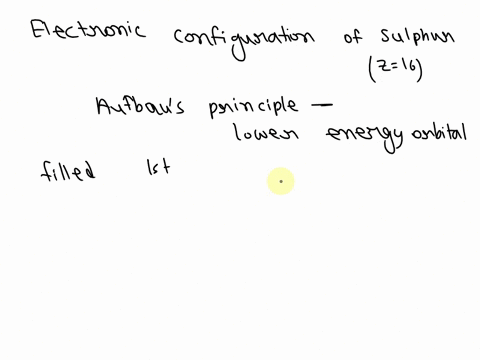 Electronic configuration of sulphur
(Z=16)
Aufbau's principle —
lower energy orbital
filled 1st